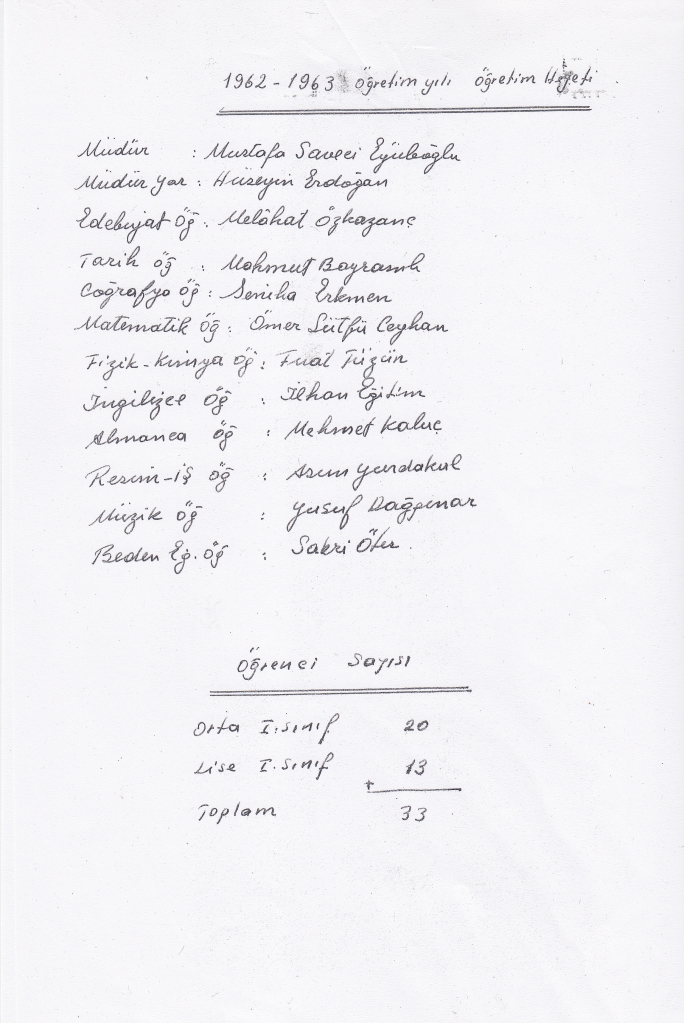 1962 - 1963 Öğretim yılı Öğretim Heyeti
Müdür : Mustafa Saveci Eyüboğlu
Müdür Yar : Hüseyin Erdoğan
Edebiyat Öğ : Melâhat Özkazanç
Tarih öğ : Mahmut Bayramlı
Coğrafya öğ : Seniha Erkmen
Matematik Öğ : Ömer Lütfü Ceyhan
Fizik-Kimya öğ : Fuat Tüzün
İngilizce öğ : İlhan Eğitim
Almanca öğ : Mehmet Kaluç
Resim-iş öğ : Asım Yurdakul
Müzik öğ : Yusuf Dağpınar
Beden Eğ. öğ : Sabri Öter.
Öğrenci Sayısı
Orta I. sınıf 20
Lise I. sınıf 13
+
Toplam 33